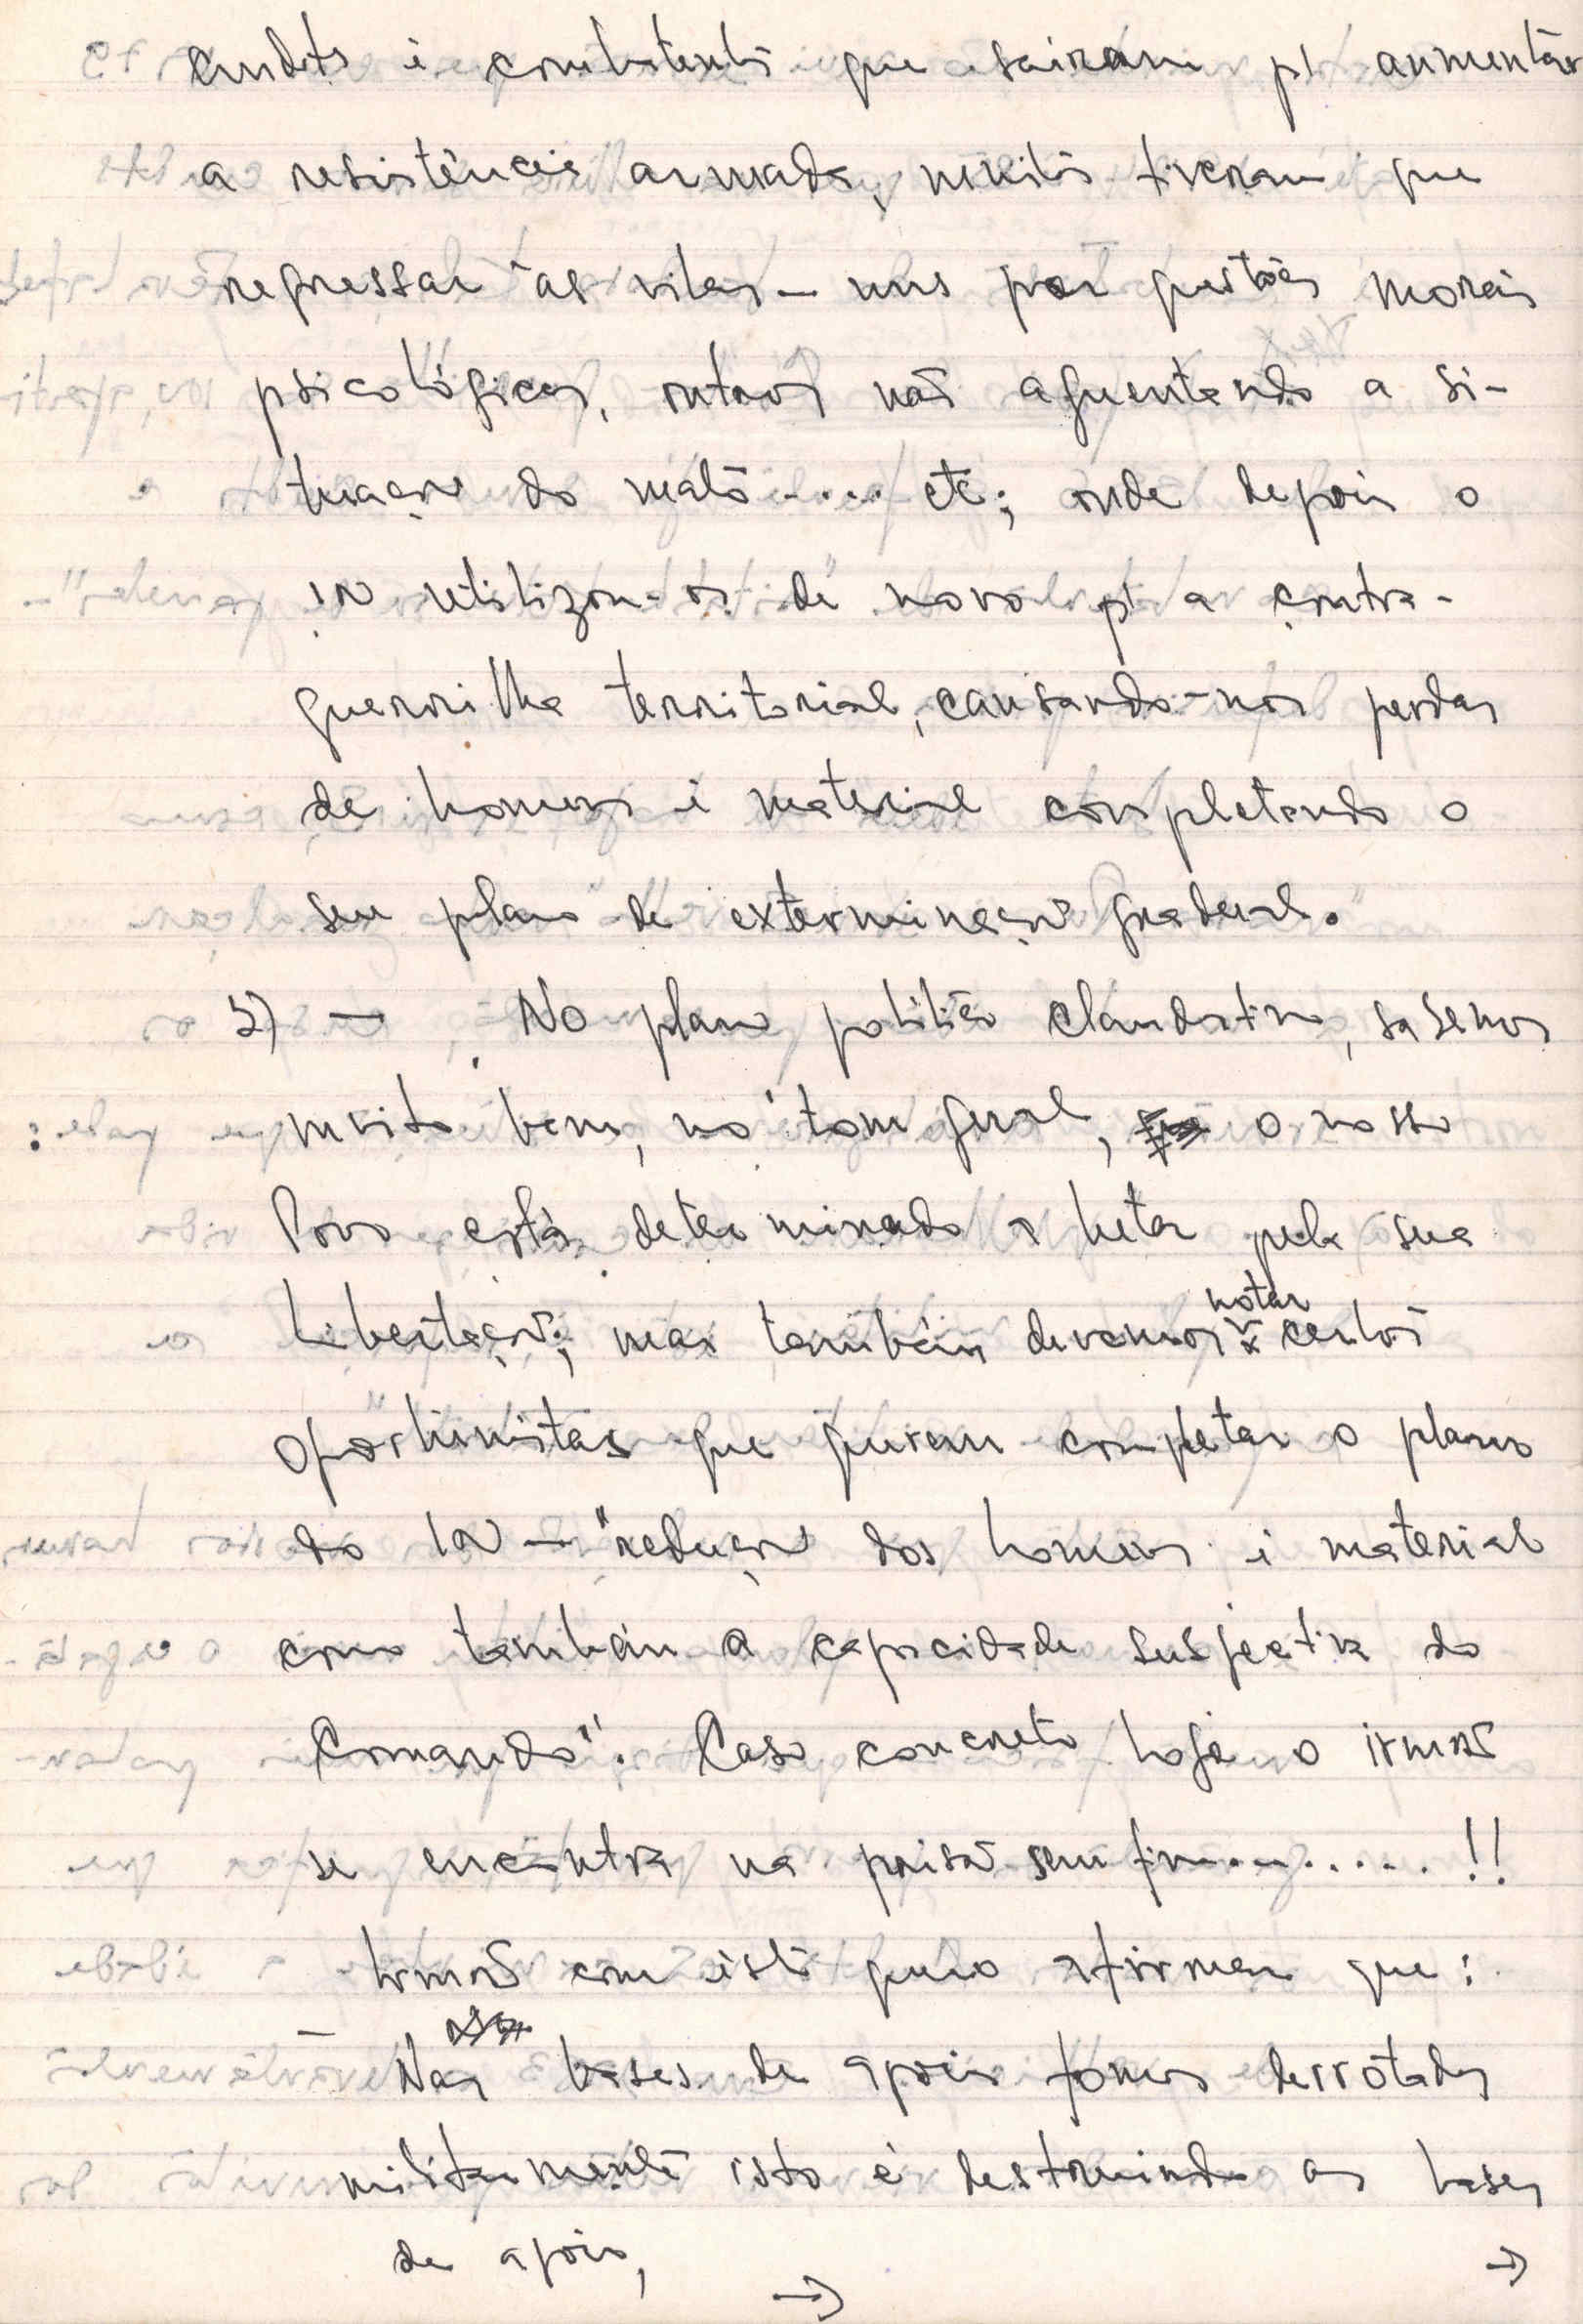 cmdts i combatentes que sairam p/ aumentar
a resistência armada, muitos tiveram que
regressar às vilas — uns por questões morais
psicológicas, outros não aguentando a si-
tuação do mato .... etc; onde depois o
IN utilizou-os de novo p/ a contra-
guerrilha territorial, causando-nos perdas
de homens i material completando o
seu plano de exterminação gradual.
5) — No plano político clandestino, sabemos
muito bem, no tom geral, o nosso
Povo está determinado a lutar pela sua
Libertação; mas também devemos notar certos
oportunistas que querem completar o plano
do IN — "redução dos homens i material
como também a capacidade subjectiva do
Comando". Caso concreto hoje o irmão
se encontra na prisão sem fim ........ !!
Irmão com isto quero afirmar que:
— Nas bases de apoio fomos derrotados
militarmente isto é destruindo as bases
de apoio, →
→